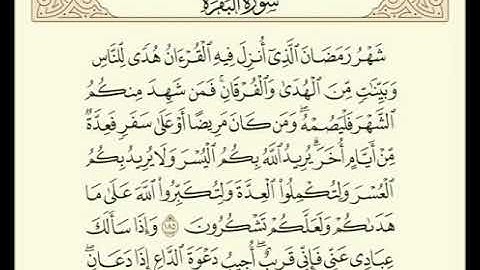 سُورَةُ البَقَرَةِ
شَهْرُ رَمَضَانَ ٱلَّذِىٓ أُنزِلَ فِيهِ ٱلْقُرْءَانُ هُدًى لِّلنَّاسِ
وَبَيِّنَٰتٍ مِّنَ ٱلْهُدَىٰ وَٱلْفُرْقَانِ ۚ فَمَن شَهِدَ مِنكُمُ
ٱلشَّهْرَ فَلْيَصُمْهُ ۖ وَمَن كَانَ مَرِيضًا أَوْ عَلَىٰ سَفَرٍ فَعِدَّةٌ
مِّنْ أَيَّامٍ أُخَرَ ۗ يُرِيدُ ٱللَّهُ بِكُمُ ٱلْيُسْرَ وَلَا يُرِيدُ بِكُمُ
ٱلْعُسْرَ وَلِتُكْمِلُوا۟ ٱلْعِدَّةَ وَلِتُكَبِّرُوا۟ ٱللَّهَ عَلَىٰ مَا
هَدَىٰكُمْ وَلَعَلَّكُمْ تَشْكُرُونَ ١٨٥ وَإِذَا سَأَلَكَ
عِبَادِى عَنِّى فَإِنِّى قَرِيبٌ ۖ أُجِيبُ دَعْوَةَ ٱلدَّاعِ إِذَا دَعَانِ ۖ